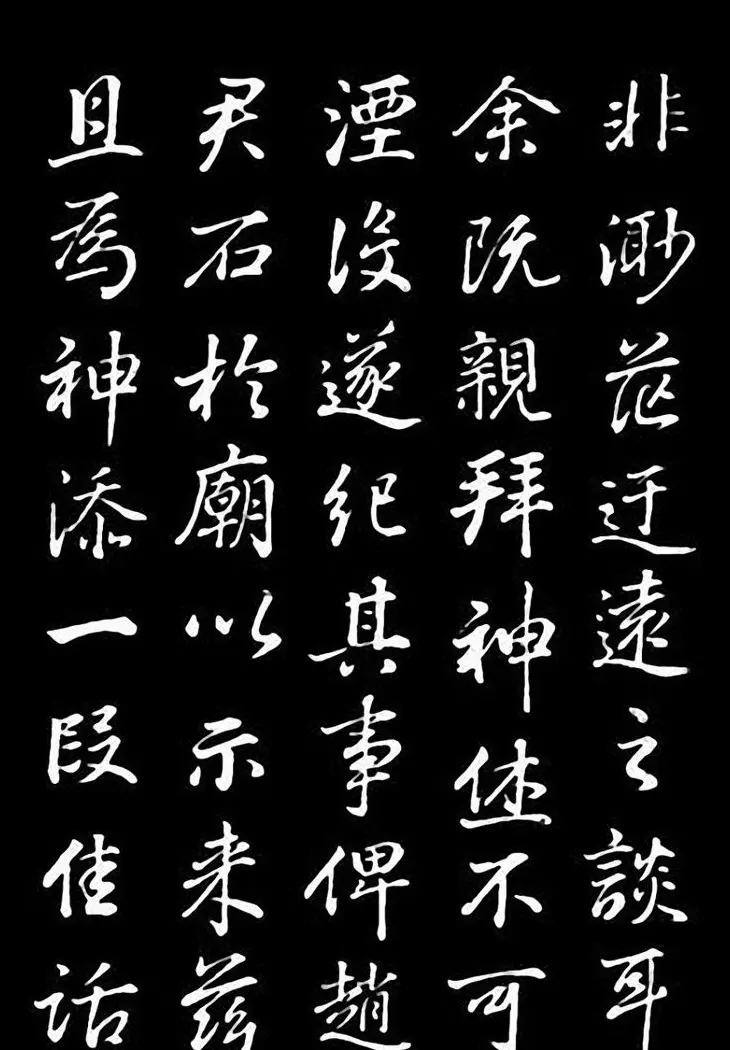 非渺茫迂遠之談耳
余既親拜神体不可
湮没遂纪其事俾趙
君石於廟以示来茲
且為神添一段佳話